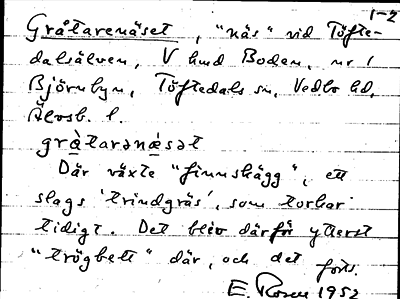 1-2
Gråtarenäset, "näs" vid Töfte-
dalsälven, V hmd Boden, nr 1
Björnbyn, Töftedals sn, Vedbo hd,
Älvsb. l.
grà̱tarənä̱sət
Där växte "finnskägg", ett
slags 'trindgräs', som torkar
tidigt. Det blev därför ytterst
"trögbett" där, och det
E. Rosen 1952